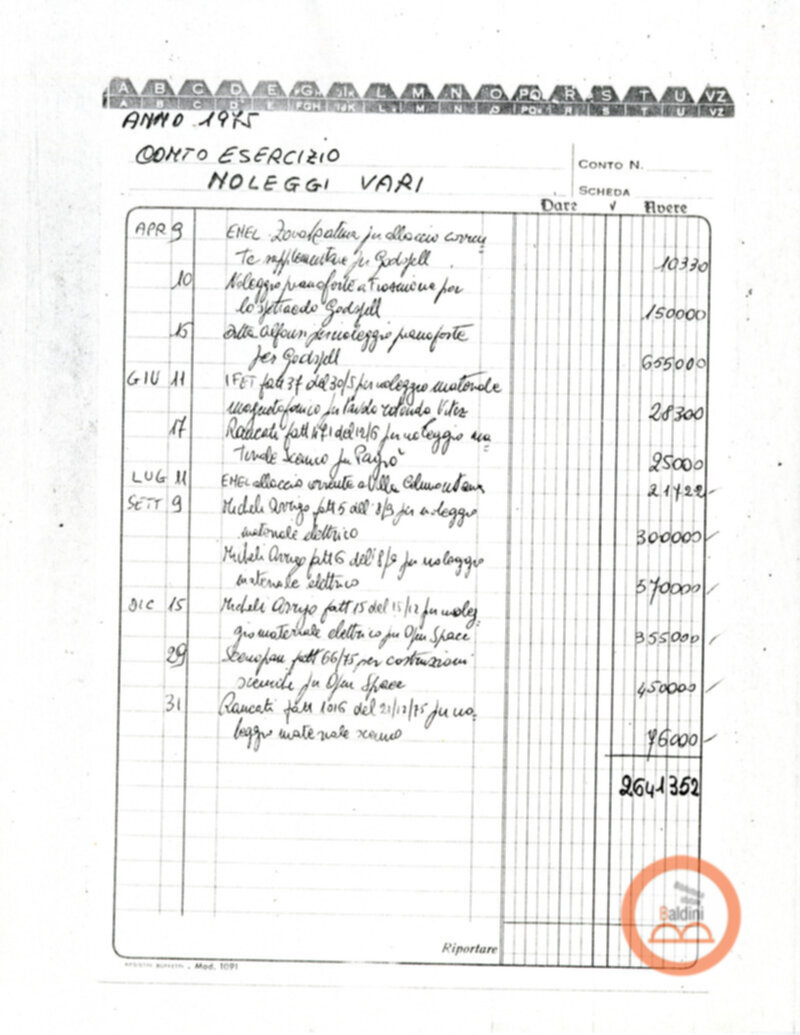 A B C D E FGH IJK L M N O PQ R S T U VZ
A B C D E FGH IJK L M N O PQ R S T U VZ
ANNO 1975
CONTO ESERCIZIO
NOLEGGI VARI
CONTO N.
SCHEDA
Dare √ Avere
APR 9 ENEL per allaccio corren-
te supplementare per Godspell 10330
10 Noleggio pianoforte a Frosinone per
lo spettacolo Godspell 150000
15 Ditta Alfonsi per noleggio pianoforte
per Godspell 655000
GIU 11 IFET fatt 37 del 30/5 per noleggio materiale
magnetofonico per rotondo 28300
17 Rancati fatt 471 del 12/6 per noleggio ma-
teriale scenico per 25000
LUG 11 ENEL allaccio corrente a Villa Celimontana 21722
SETT 9 Micheli Arrigo fatt 5 dell' 8/9 per noleggio
materiale elettrico 300000
Micheli Arrigo fatt 6 dell' 8/9 per noleggio
materiale elettrico 570000
DIC 15 Micheli Arrigo fatt 15 del 15/12 per noleg-
gio materiale elettrico per Open Space 355000
29 fatt 66/75 per costruzioni
sceniche per Open Space 450000
31 Rancati fatt 1016 del 21/12/75 per no-
leggio materiale scenico 76000
2641352
Riportare
Mod. 1091
Biblioteca
Baldini